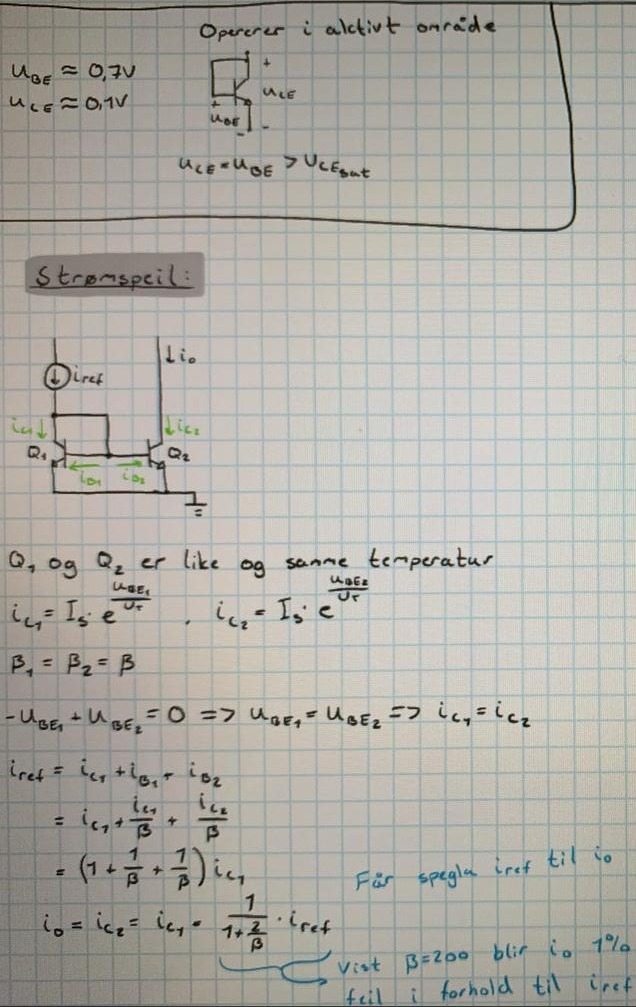 Opererer i aktivt område
u_BE ≈ 0,7V
u_CE ≈ 0,1V
+
u_CE
+
u_BE
-
-
u_CE = u_BE > U_CEsat
Strømspeil:
↓i₀
↓iref
i_C1↓
↓i_C2
Q₁
Q₂
i_B1
i_B2
Q₁ og Q₂ er like og samme temperatur
i_C1 = I_S · e^(u_BE1/U_T) , i_C2 = I_S · e^(u_BE2/U_T)
β₁ = β₂ = β
-u_BE1 + u_BE2 = 0 => u_BE1 = u_BE2 => i_C1 = i_C2
iref = i_C1 + i_B1 + i_B2
= i_C1 + i_C1/β + i_C2/β
= (1 + 1/β + 1/β) i_C1
Får spegla iref til i₀
i₀ = i_C2 = i_C1 = 1/(1+2/β) · iref
Vist β=200 blir i₀ 1%
feil i forhold til iref